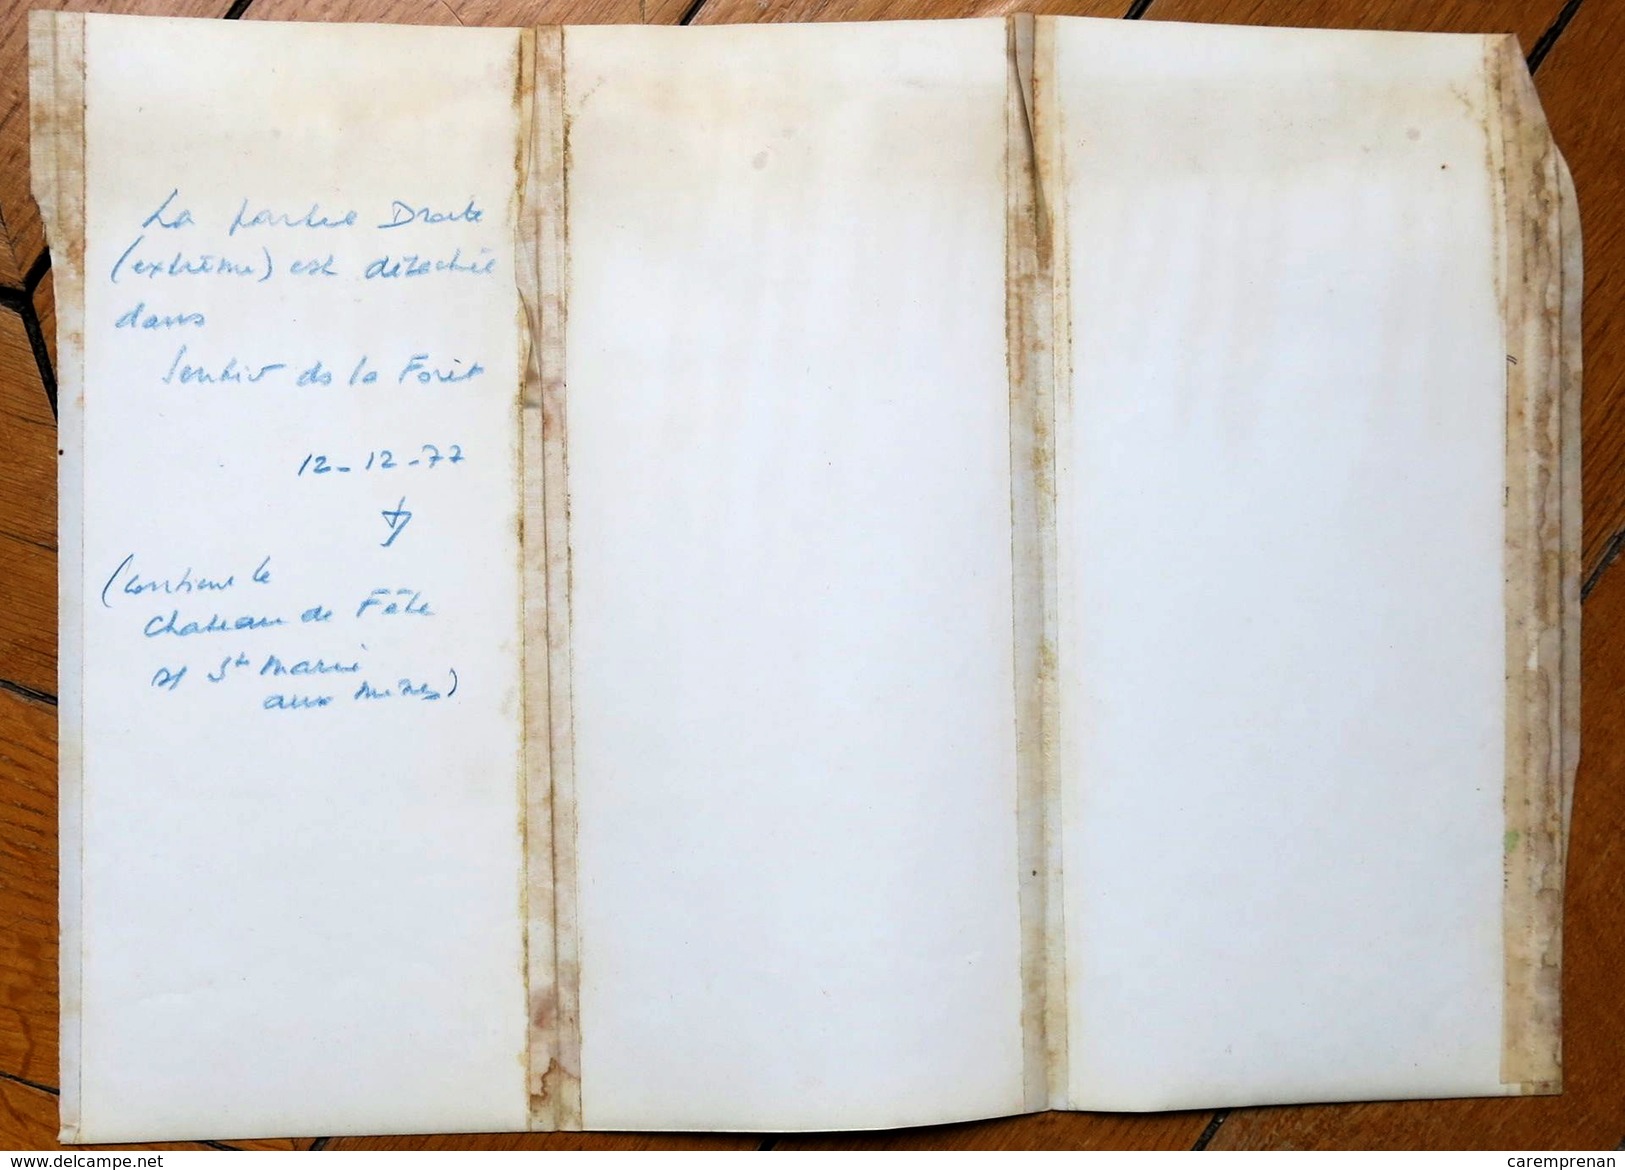 La partie Droite
(extrême) est détachée
dans
Sentier de la Forêt
12-12-77
(contient le
Chateau de Fête
et Ste Marie
aux Mines)
www.delcampe.net
caremprenan